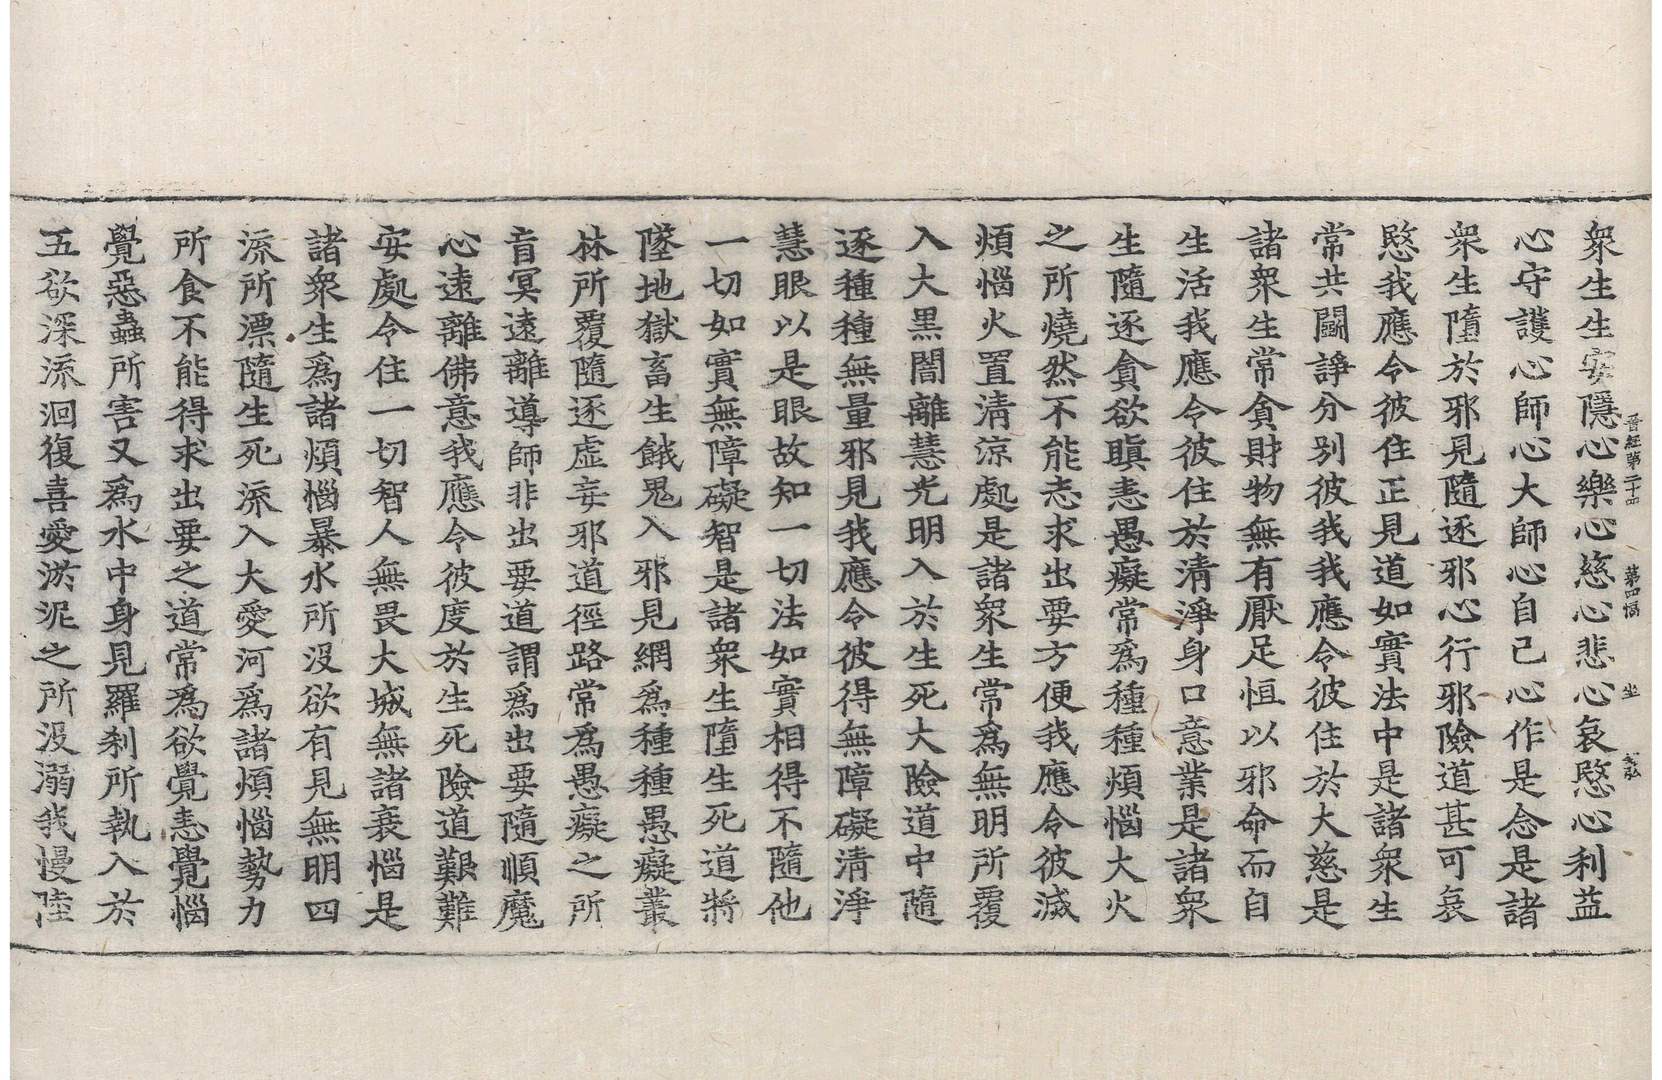 衆生生安隱心樂心慈心悲心哀愍心利益
晉經第二十四 第四幅 坐
心守護心師心大師心自己心作是念是諸
衆生墮於邪見隨逐邪心行邪險道甚可哀
愍我應令彼住正見道如實法中是諸衆生
常共鬪諍分別彼我我應令彼住於大慈是
諸衆生常貪財物無有厭足恒以邪命而自
生活我應令彼住於清淨身口意業是諸衆
生隨逐貪欲瞋恚愚癡常爲種種煩惱大火
之所燒然不能志求出要方便我應令彼滅
煩惱火置清涼處是諸衆生常爲無明所覆
入大黒闇離慧光明入於生死大險道中隨
逐種種無量邪見我應令彼得無障礙清淨
慧眼以是眼故知一切法如實相得不隨他
一切如實無障礙智是諸衆生墮生死道將
墜地獄畜生餓鬼入邪見網爲種種愚癡叢
林所覆隨逐虛妄邪道徑路常爲愚癡之所
盲冥遠離導師非出要道謂爲出要隨順魔
心遠離佛意我應令彼度於生死險道艱難
安處令住一切智人無畏大城無諸衰惱是
諸衆生爲諸煩惱暴水所没欲有見無明四
流所漂隨生死流入大愛河爲諸煩惱勢力
所食不能得求出要之道常爲欲覺恚覺惱
覺惡蟲所害又爲水中身見羅刹所執入於
五欲深流洄復喜愛淤泥之所没溺我慢陸